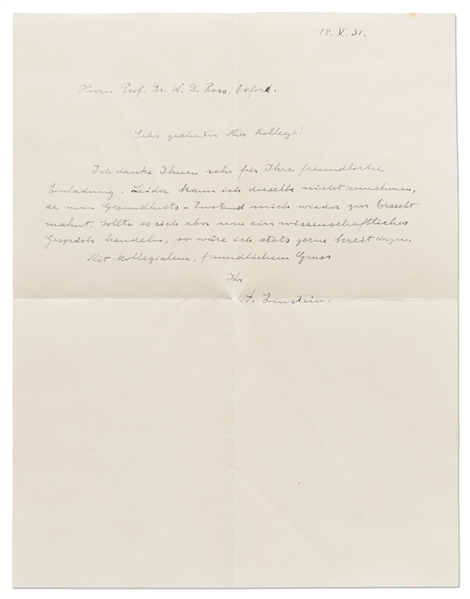 12. V. 31.
Herrn Prof. Dr. W. D. Ross, Oxford.
Sehr geehrter Herr Kollege!
Ich danke Ihnen sehr für Ihre freundliche
Einladung. Leider kann ich dieselbe nicht annehmen,
da mein Gesundheits-Zustand mich wieder zur Vorsicht
mahnt. Sollte es sich aber um ein wissenschaftliches
Gespräch handeln, so wäre ich stets gerne bereit dazu.
Mit kollegialem, freundlichem Gruss
Ihr
A. Einstein.